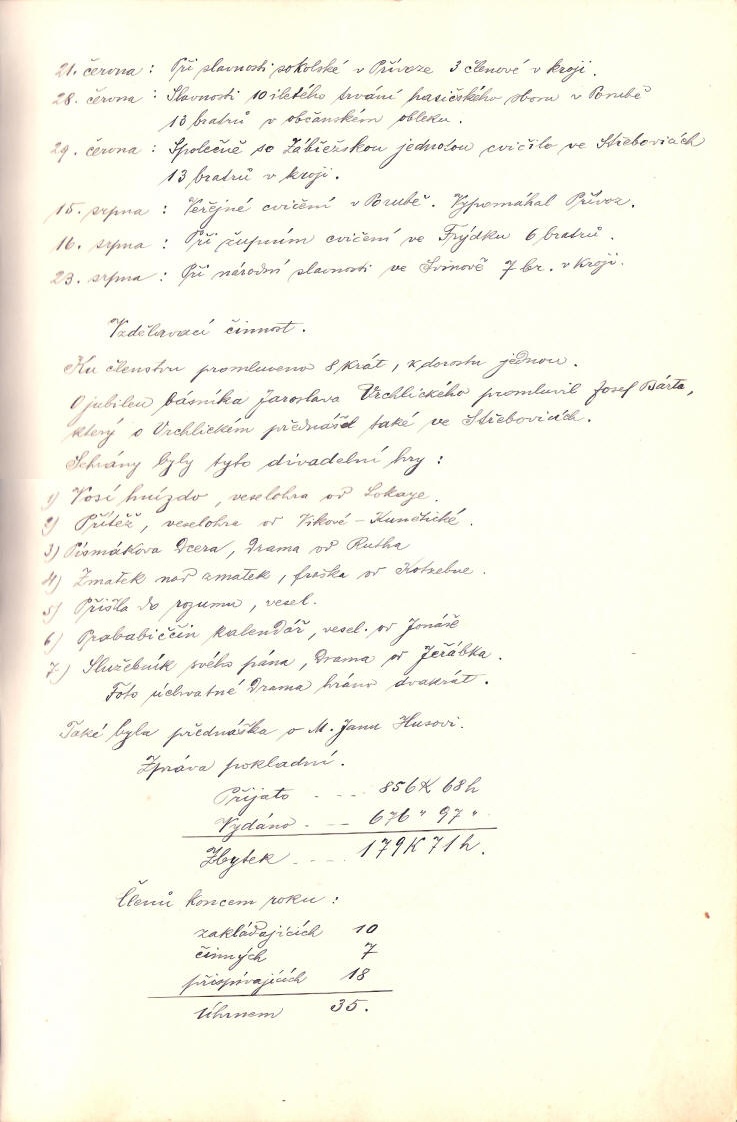 21. června : Při slavnosti sokolské v Přívoze 3 členové v kroji.
28. června : Slavnosti 10 iletého trvání hasičského sboru v Porubě
13 bratrů v občanském obleku.
29. června : Společně se Zábřežskou jednotou cvičilo ve Střebovicích
13 bratrů v kroji.
15. srpna : Veřejné cvičení v Porubě. Vypomáhal Přívoz.
16. srpna : Při župním cvičení ve Frýdku 6 bratrů.
23. srpna : Při národní slavnosti ve Svinově 7 br. v kroji.
Vzdělavací činnost.
Ku členstvu promluveno 8 krát, k dorostu jednou.
O jubileu básníka Jaroslava Vrchlického promluvil Josef Bárta,
který o Vrchlickém přednášel také ve Střebovicích.
Sehrány byly tyto divadelní hry :
1) Vosí hnízdo, veselohra od Lokaye.
2) Přítěž, veselohra od Vikové-Kunětické.
3) Písmákova dcera, drama od Rutha
4) Zmatek nad zmatek, fraška od Kotzebue.
5) Přišla do rozumu, vesel.
6) Prababiččin kalendář, vesel. od Jonáše
7.) Služebník svého pána, drama od Jeřábka.
Toto úchvatné drama hráno dvakrát.
Také byla přednáška o M. Janu Husovi.
Zpráva pokladní.
Přijato . --- 856 K 68 h
Vydáno . -- 676 " 97 "
Zbytek . --- 179 K 71 h.
Členů koncem roku :
zakládajících 10
činných 7
přispívajících 18
Úhrnem 35.